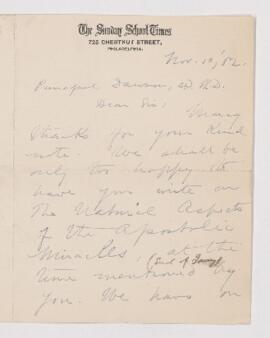 The Sunday School Times
725 CHESTNUT STREET,
PHILADELPHIA.
Nov. 10, '82.
Principal Dawson, LL.D.
Dear Sir: Many
thanks for your kind
note. We shall be
only too happy to
have you write on
The Natural Aspects
of the Apostolic
Miracles, at the
time mentioned by
you. We have on